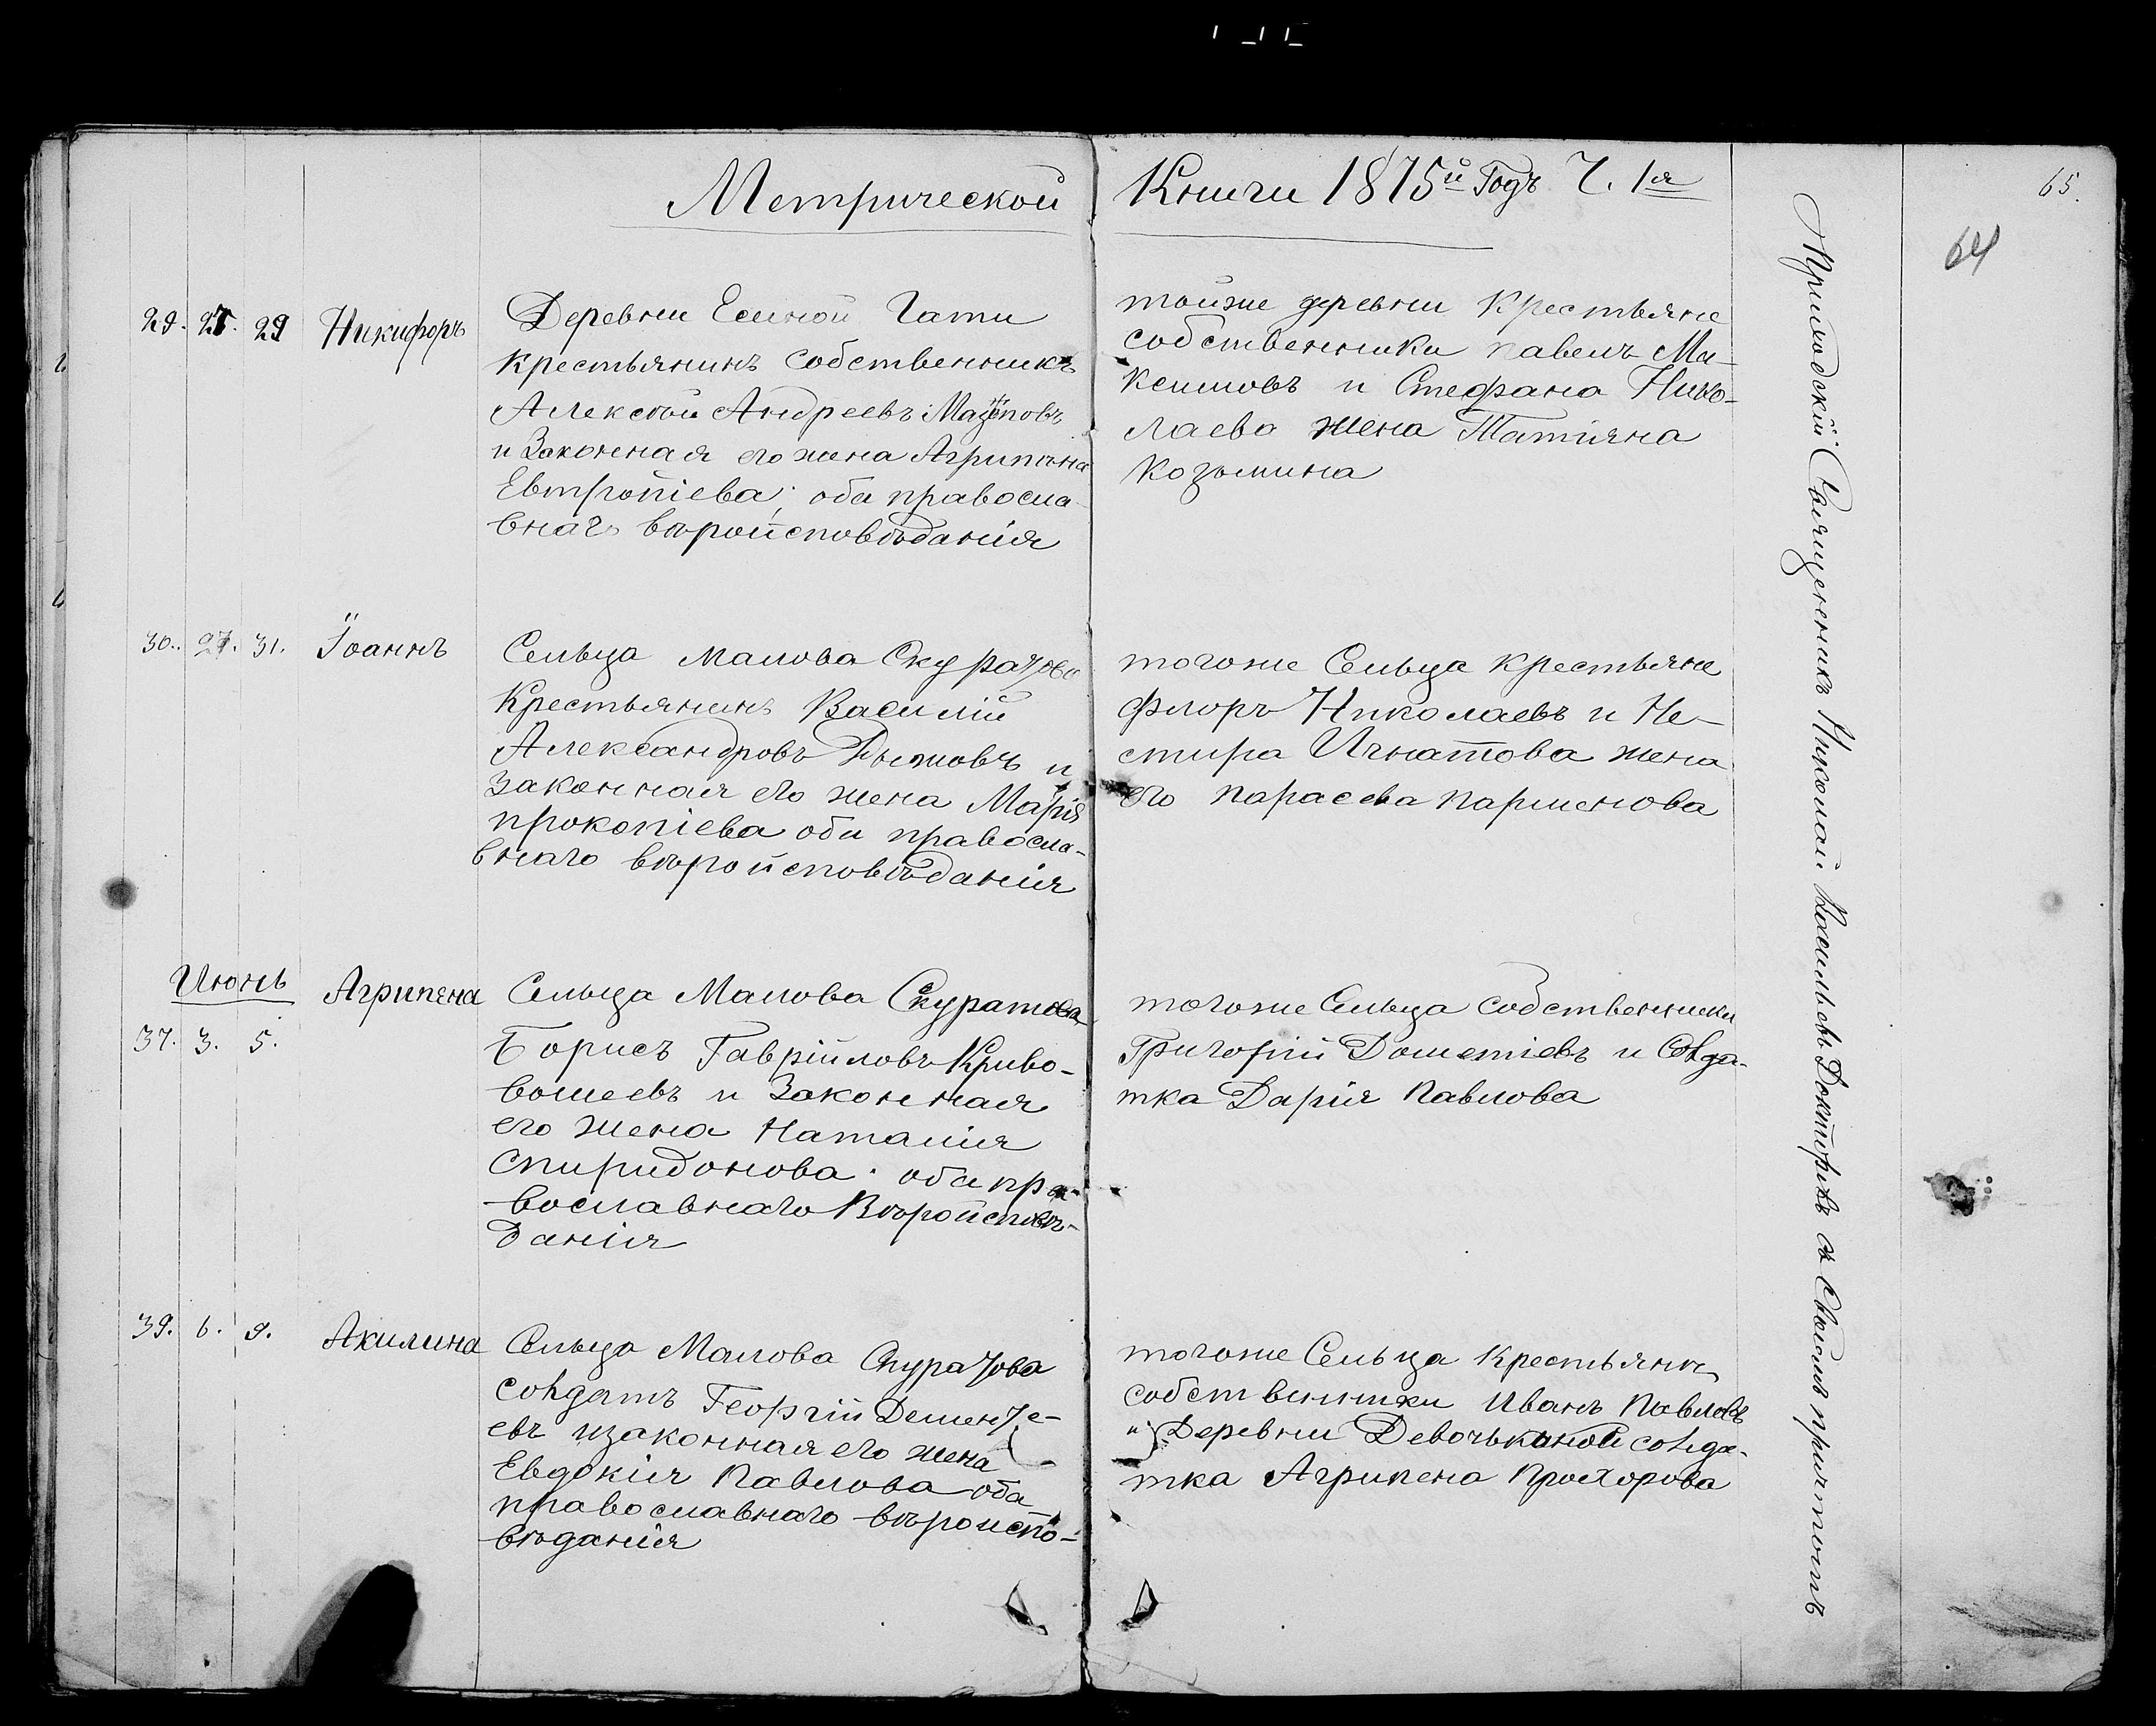 Метрической Книги 1875й Годъ Ч. 1я
65.
64
29. 27. 29 Никифоръ
Деревни Есиной Гати
крестьянинъ собственникъ
Алексѣй Андреевъ
и Законная его жена Агрипѣна
Евтропіева; оба правосла
внаго вѣроисповѣданія
тойже деревни Крестьяне
собственники павелъ Ма-
ксимовъ и Стефана Нико-
лаева жена Татіяна
Козьмина
30. 27. 31. Іоаннъ
Сельца Малова Скуратова
Крестьянинъ Василій
Александровъ Дымовъ и
законная его жена Марія
прокопіева оба правосла-
внаго вѣроисповѣданія
тогоже Сельца крестьяне
Флоръ Николаевъ и Не-
стира Игнатова жена
его парасева парменова
Июнь
37. 3. 5. Агрипена
Сельца Малова Скуратова
Борисъ Гавріиловъ Криво-
вошеевъ и Законная
его жена Наталия
Спиридонова. оба пра-
вославнаго Вѣроисповѣ-
данія
тогоже Сельца собственники
Григорій Дометіевъ и Солда-
тка Дарія Павлова
39. 6. 9. Акилина
Сельца Малова Скуратова
солдатъ Георгій Дементе-
евъ изаконная его жена
Евдокія Павлова оба
православнаго вѣроиспо-
вѣданія
тогоже Сельца Крестьянинъ
собственники Иванъ Павловъ
и Деревни Девочькиной солда-
тка Агрипена Прохорова
Приходскій Священникъ Николай Васильевъ Докторовъ съ Своимъ причтомъ